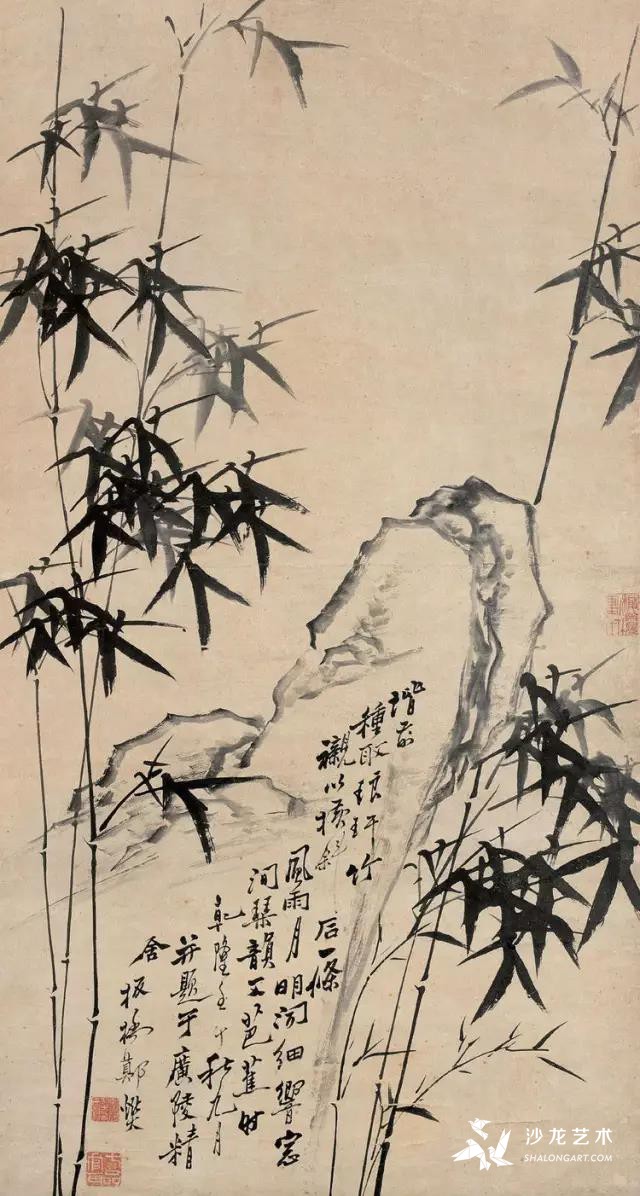 階前
種取琅玕竹
襯以橫斜
石一條
風雨月明聞細響窓
間琴韻芭蕉时
乾隆壬午秋九月
并題于廣陵精
舍板橋鄭燮
沙龙艺术
SHALONGART.COM